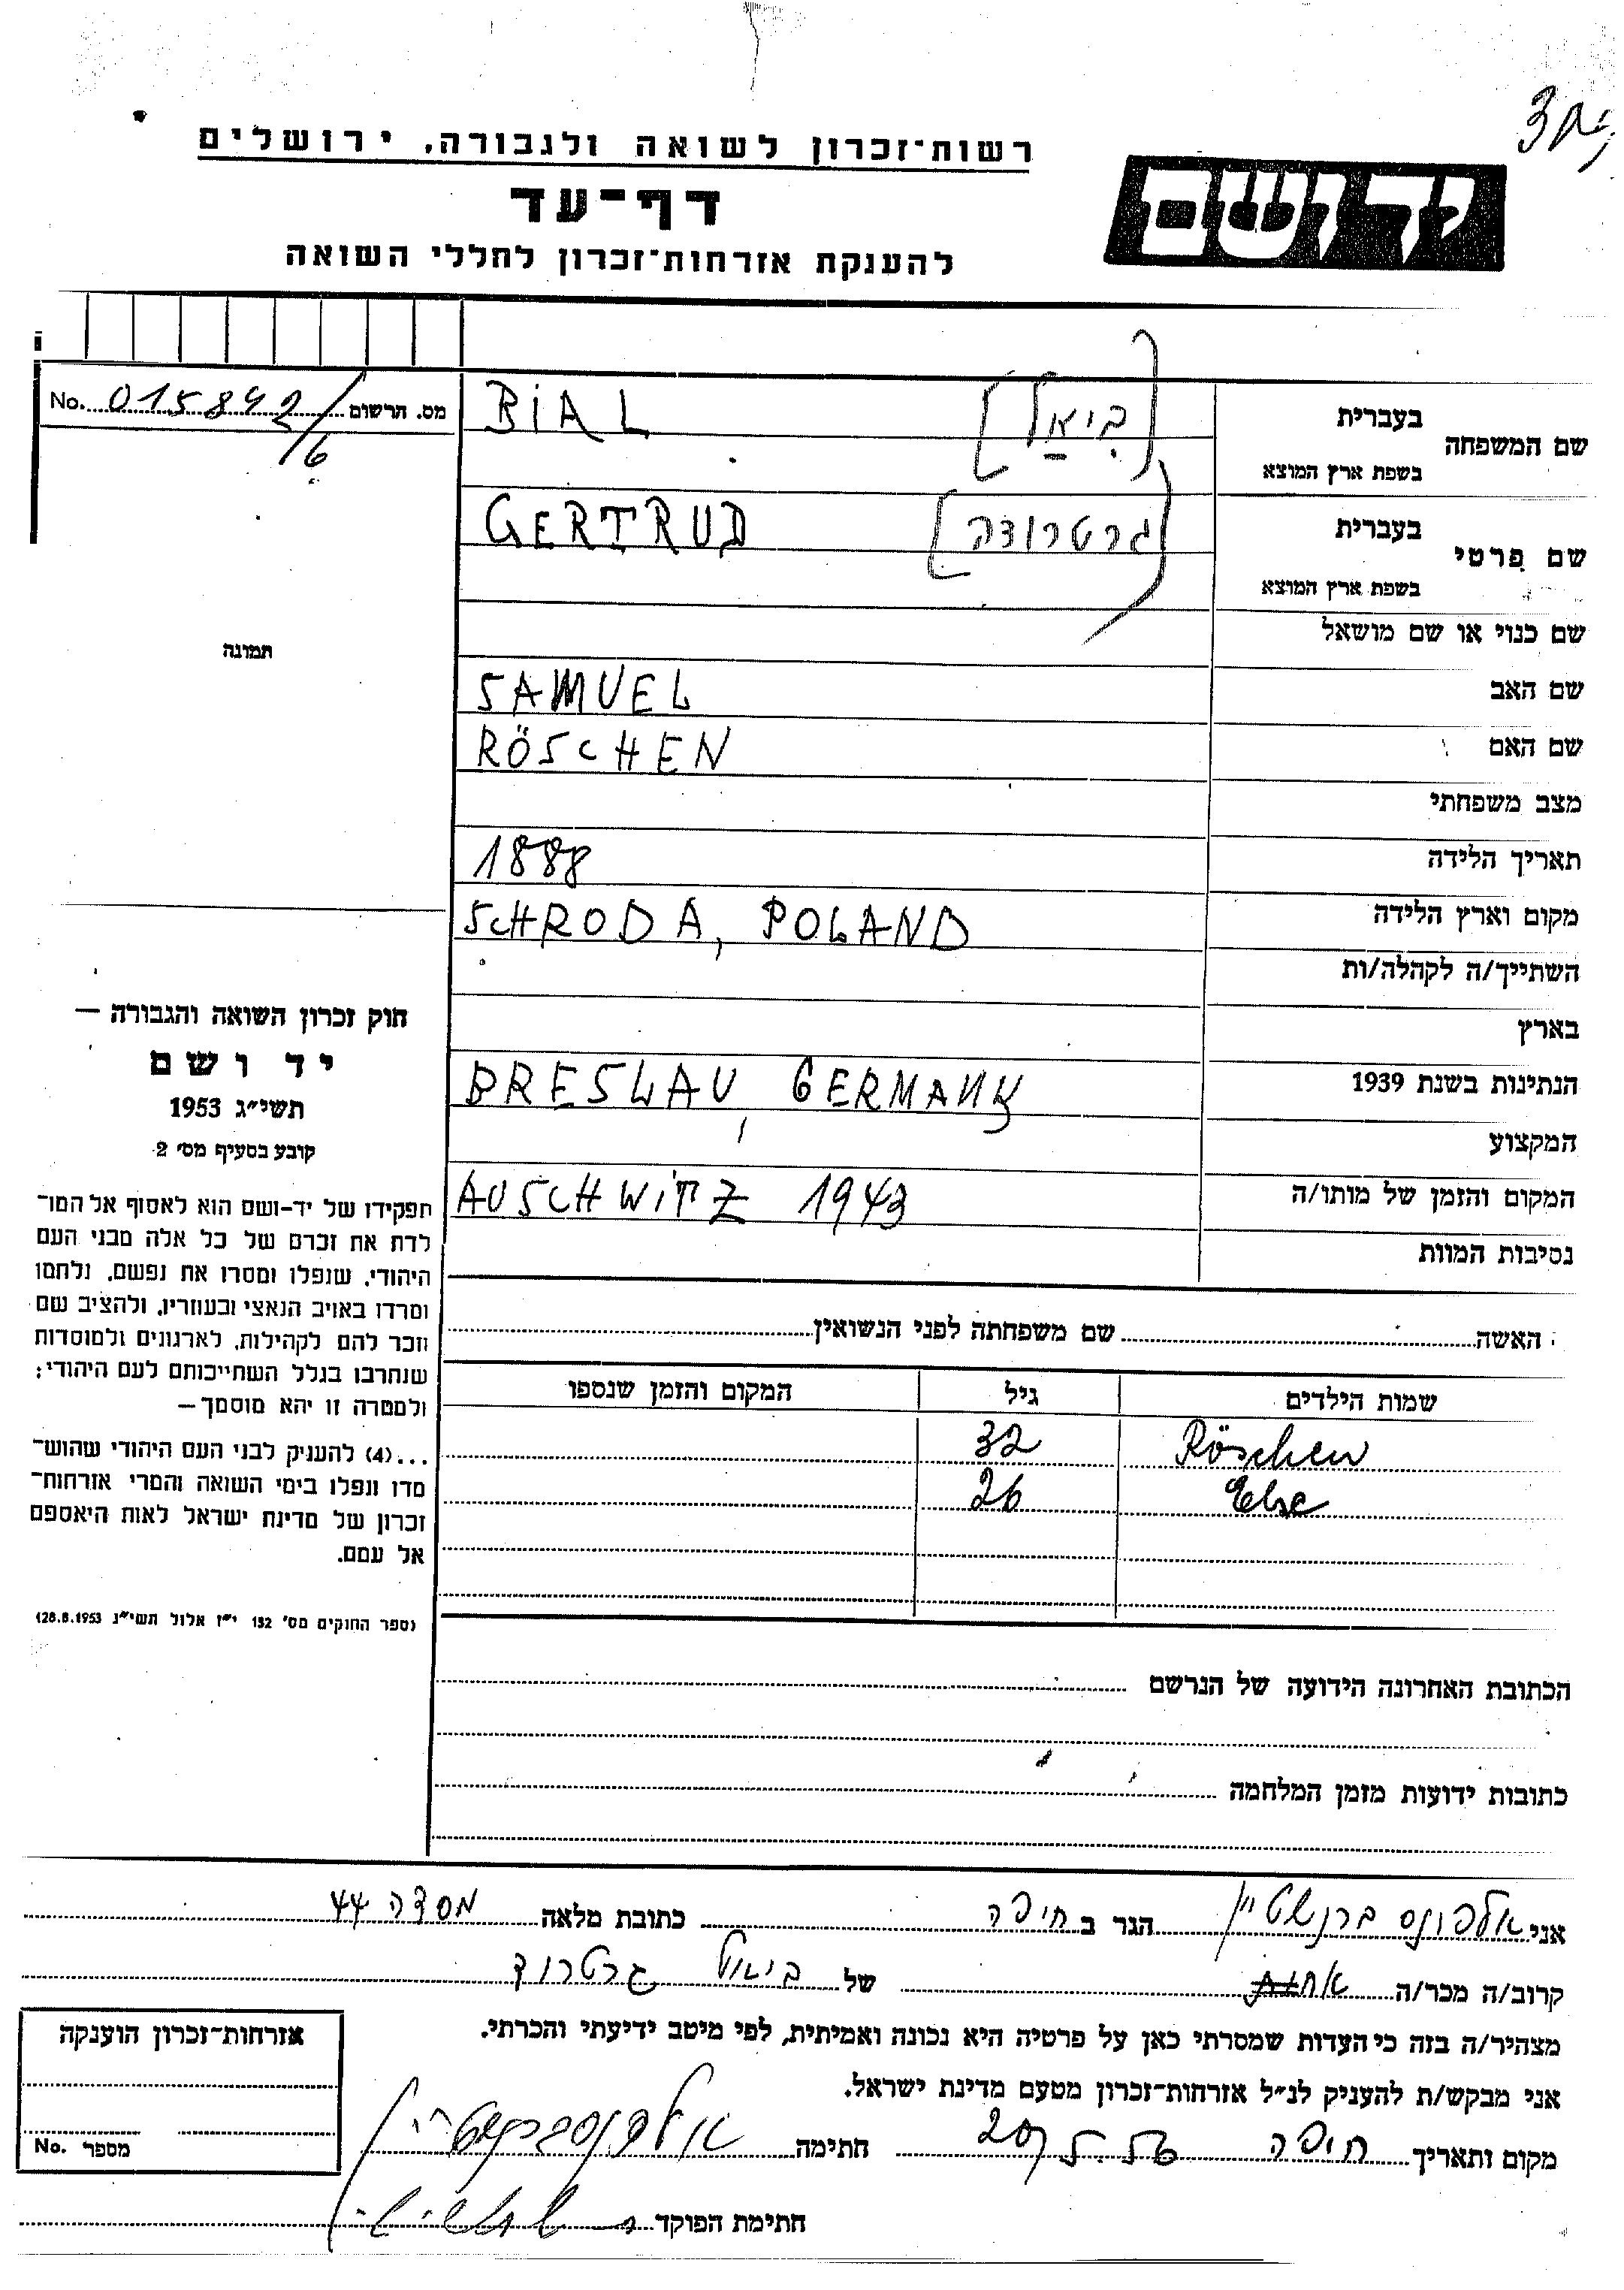 רשות־זכרון לשואה ולגבורה, ירושלים
יד ושם
דף־עד
להענקת אזרחות־זכרון לחללי השואה
מס. הרשום No. 015842/6
שם המשפחה
בעברית [ביאל]
בשפת ארץ המוצא BIAL
שם פרטי
בעברית [גרטרודה]
בשפת ארץ המוצא GERTRUD
שם כנוי או שם מושאל
תמונה
שם האב SAMUEL
שם האם RÖSCHEN
מצב משפחתי
תאריך הלידה 1888
מקום וארץ הלידה SCHRODA, POLAND
השתייך/ה לקהלה/ות
בארץ
הנתינות בשנת 1939 BRESLAU, GERMANY
המקצוע
המקום והזמן של מותו/ה AUSCHWITZ 1943
נסיבות המוות
האשה שם משפחתה לפני הנשואין
שמות הילדים גיל המקום והזמן שנספו
Röschen 32
Else 26
חוק זכרון השואה והגבורה —
יד ושם
תשי״ג 1953
קובע בסעיף מס׳ 2
תפקידו של יד-ושם הוא לאסוף אל המו־
לדת את זכרם של כל אלה מבני העם
היהודי, שנפלו ומסרו את נפשם, נלחמו
ומרדו באויב הנאצי ובעוזריו, ולהציב שם
וזכר להם לקהילות, לארגונים ולמוסדות
שנחרבו בגלל השתייכותם לעם היהודי;
ולמטרה זו יהא מוסמך —
...(4) להעניק לבני העם היהודי שהוש־
מדו ונפלו בימי השואה והמרי אזרחות־
זכרון של מדינת ישראל לאות היאספם
אל עמם.
(ספר החוקים מס׳ 132 י״ז אלול תשי״ג 28.8.1953)
הכתובת האחרונה הידועה של הנרשם
כתובות ידועות מזמן המלחמה
אני אלפונס ברנשטיין הגר ב חיפה כתובת מלאה מסדה 44
קרוב/ה מכר/ה של ביאל גרטרוד
מצהיר/ה בזה כי העדות שמסרתי כאן על פרטיה היא נכונה ואמיתית, לפי מיטב ידיעתי והכרתי.
אני מבקש/ת להעניק לנ״ל אזרחות־זכרון מטעם מדינת ישראל.
מקום ותאריך חיפה חתימה אלפונס ברנשטיין
חתימת הפוקד
אזרחות־זכרון הוענקה
מספר No.